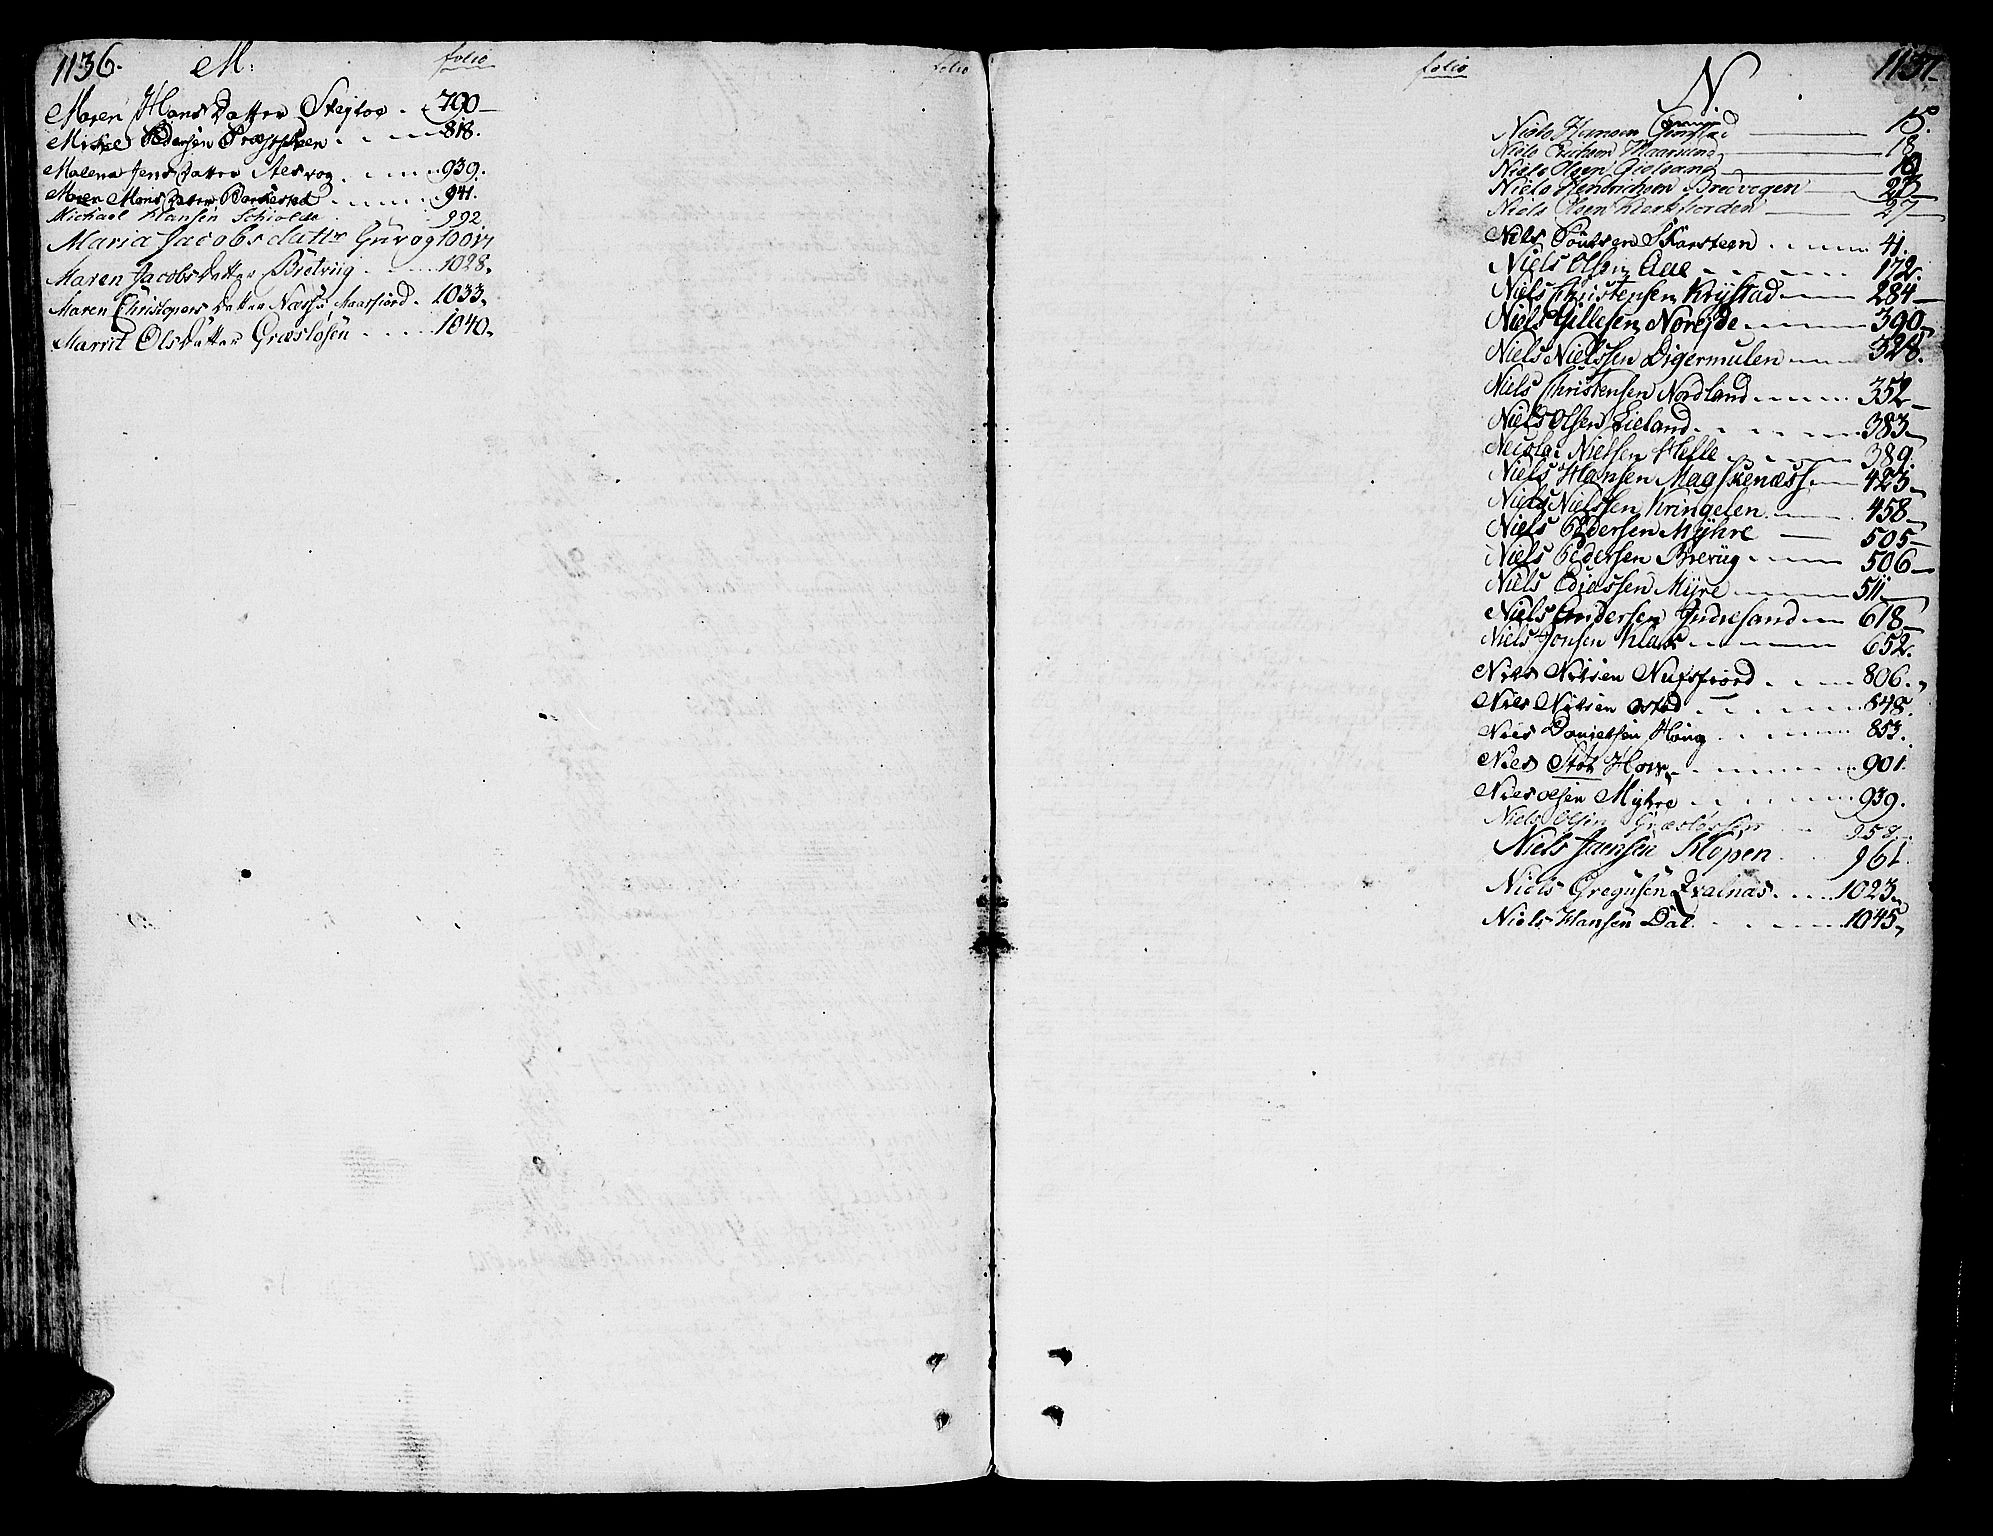 1136.
M.
folio
folio
Maren Hans Datter Stejloe . 790
Mickel Pedersen Præststeen . . 818.
Malena Jens Datter Alsvog . . 939.
Maren Mons Datter Barkestad . . 941.
Michael Hansen Schiolde . 992
Maria Jacobsdattr Guvog 1001
Maren Jacobs Datter Bretviig . . 1028.
Maren Christophers Datter Næss i Maarfiord . 1033.
Marrit Ols Datter Græsløsen . . 1040.
folio
N.
1137.
Niels Hansen 15.
Niels Erichsen Maarsund 18
Niels Olsen 19
Niels Hendrichsen Bredvegen 23
Niels Olsen Kierkfiorden 27
Nils Poulsen Skarsteen . . 41.
Niels Olsen Aae . . 172.
Niels Christensen Krÿstad 284
Niels Gillesen Norejde 390
Niels Nielssen Digermulen 328.
Niels Christensen Nordland 352
Niels Olsen Lieland 383
Nicolai Nielsen Helle 389.
Niels Hansen Magskenæss 423
Niels Nielssen Kringelen 458
Niels Pedersen Mÿhre 505
Niels Pedersen Breviig 506
Niels Ediassen Mÿre 511
Niels Andersen Indresand 618
Niels Jonsen Klack 652.
Niels Nilsen Nusfiord . . 806.
Niels Nilsen Ostad . . 848.
Niels Danielsen Houg . . 853.
Niels Stot Hov . . 901.
Niels Olsen Myhre . . 939.
Niels Olsen Græsløssen 958.
Niels Jansen Klopen . . 961.
Niels Gregusen Qvalnas . . 1023.
Niels Hansen Dal . . 1045.